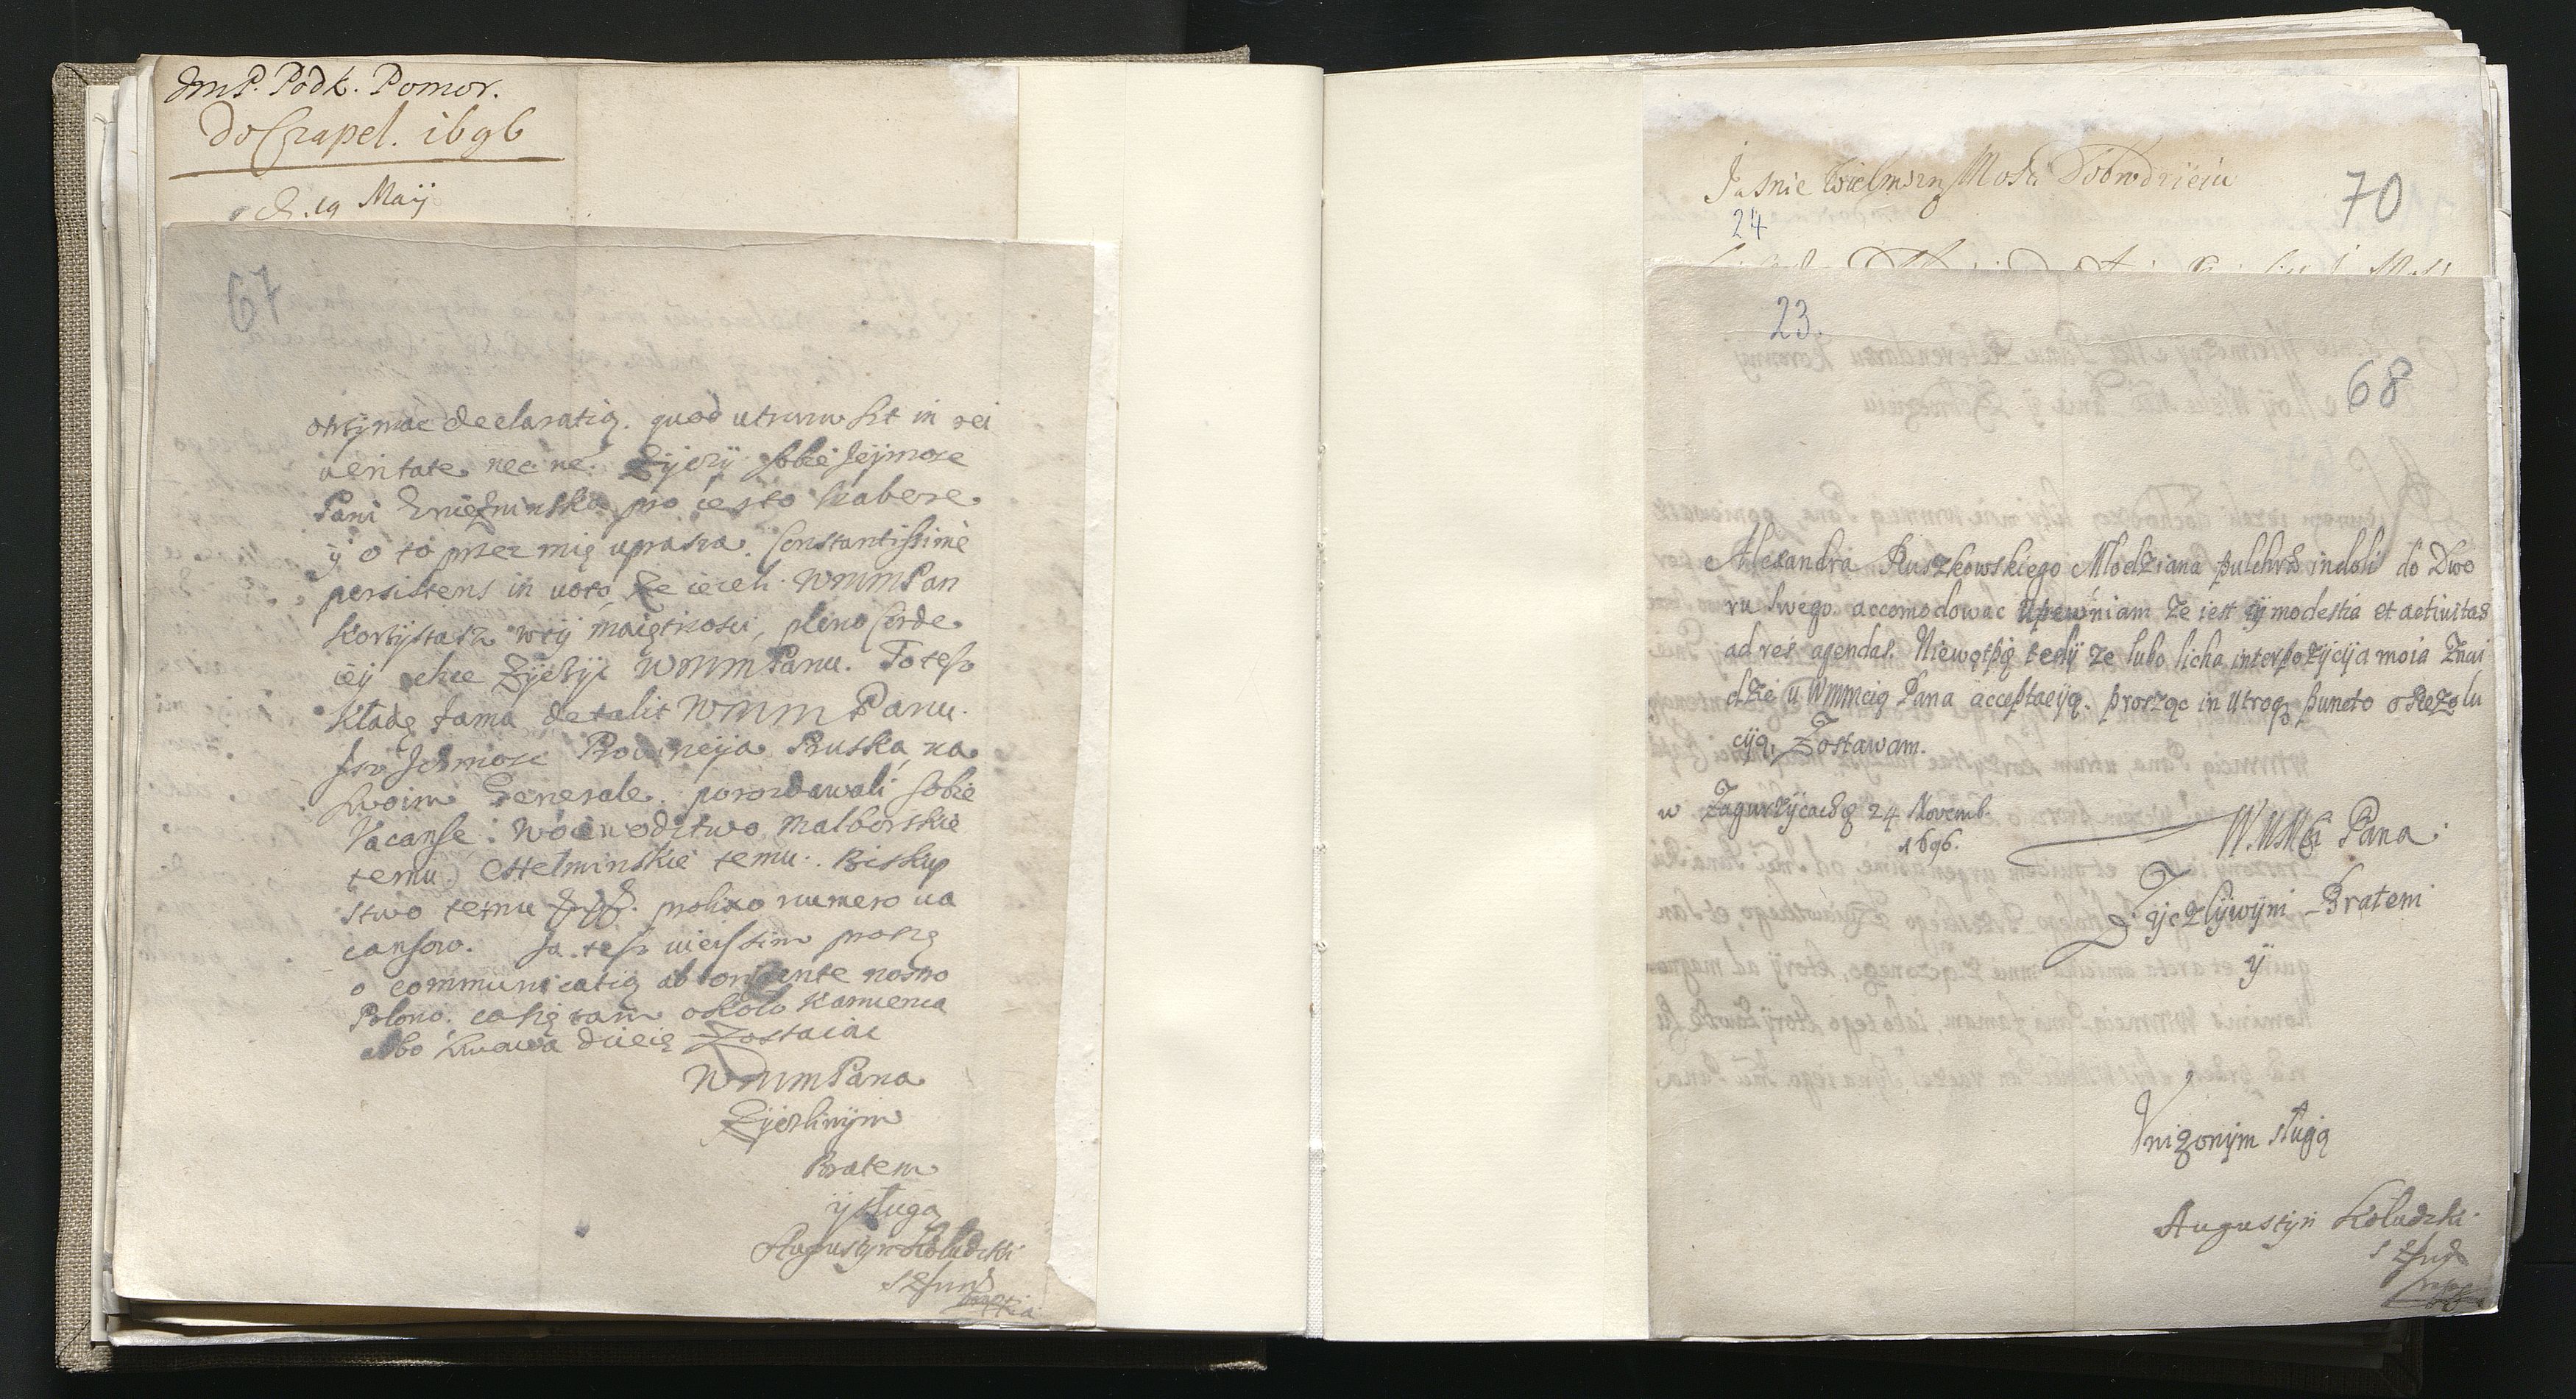 JmP. Podk. Pomor.
do Czapel. 1696
d. 19 Maij
67
otrzÿmac declaratią. quod utrum sit in rei
veritate nec ne. Zÿczÿ sobie Jeÿmosc
Pani pro certo habere
ÿ o to przez mię uprasza. Constantissime
persistens in voto ze iezeli WMMPan
korzÿstasz w tÿ maiętnosci, pleno corde
ieÿ chce zÿczÿc WMMPanu. To tesz
kładę fama detulit WMMPanu.
Jsz Ichmosc Prowincÿa Pruska, na
swoim Generale porozdawali sobie
Vacanse. Woiewodztwo Malborskie
temu. Chełminskie temu. Biskup
stwo temu prolixo numero va
cansow. Ja tesz vicissim proszę
o communicatią ab oriente nostro
Polono. co się tam około Kamienca
albo Lwowa dzieię Zostaiąc
WMMPana
Zÿczliwÿm
Bratem
ÿ sługą
Augustÿn Kołudzki
Jasnie Wielmozn Mosci Dobrodzieiu
70
24
23.
68
Alexandra Ruszkowskiego Młodziana pulchræ indoli do Dwo
ru swego accomodowac upewniam ze iest ÿ modestia et activitas
ad res agendas. Niewątpię tedÿ ze lubo licha interpozÿcÿia moia Znai
dzie u Wmmcią Pana acceptacÿą. prosząc in utroq puncto o Rezolu
cÿą, Zostawam.
w Zagurzÿcach 24 Novemb.
1696.
W. Mści Pana
Zÿczliwÿm Bratem
ÿ
Unizonÿm sługą
Augustÿn Kołudzki